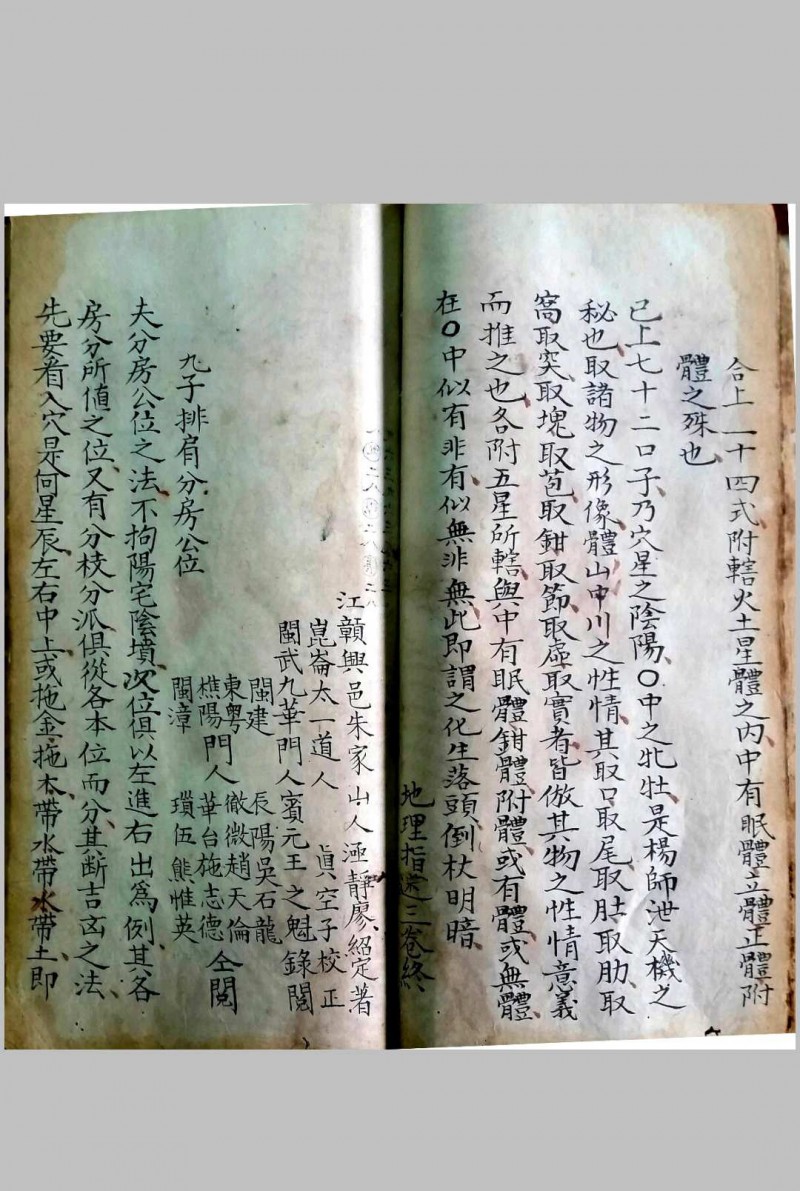 合上一十四式附轄火土星體之內中有眠體立體正體附
體之殊也
已上七十二口子乃穴星之陰陽〇中之牝牡是楊師泄天機之
秘也取諸物之形像體山中川之性情其取口取尾取肚取肋取
窩取突取塊取苞取鉗取節取虛取實者皆倣其物之性情意義
而推之也各附五星所轄與中有眠體鉗體附體或有體或無體
在〇中似有非有似無非無此即謂之化生落頭倒杖明暗
地理指迷三卷終
江贛興邑朱家山人極靜廖紹定著
崑崙太一道人 眞空子校正
閩武九華門人賓元王之魁錄閱
閩建 辰陽吳石龍
東粵 徹微趙天倫
樵陽 門人 華台施志德 仝閱
閩漳 瓚伍熊惟英
九子排肩分房公位
夫分房公位之法不拘陽宅陰墳次位俱以左進右出爲例其各
房分所値之位又有分枝分派俱從各本位而分其断吉凶之法
先要看入穴是何星辰左右中上或拖金拖木帶水帶水帶土即